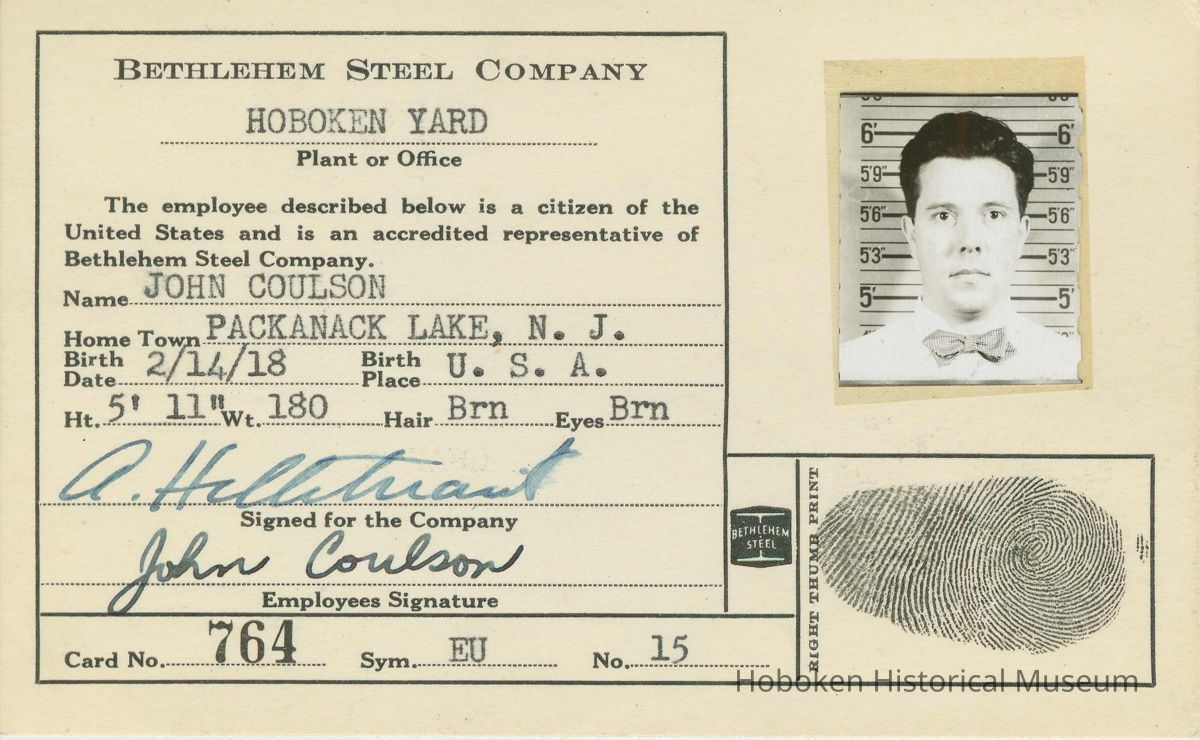 BETHLEHEM STEEL COMPANY
HOBOKEN YARD
Plant or Office
The employee described below is a citizen of the
United States and is an accredited representative of
Bethlehem Steel Company.
Name JOHN COULSON
Home Town PACKANACK LAKE, N. J.
Birth Date 2/14/18 Birth Place U. S. A.
Ht. 5' 11" Wt. 180 Hair Brn Eyes Brn
A.
Signed for the Company
John Coulson
Employees Signature
Card No. 764 Sym. EU No. 15
6' 6'
5'9" 5'9"
5'6" 5'6"
5'3" 5'3"
5' 5'
BETHLEHEM
STEEL
RIGHT THUMB PRINT
Hoboken Historical Museum